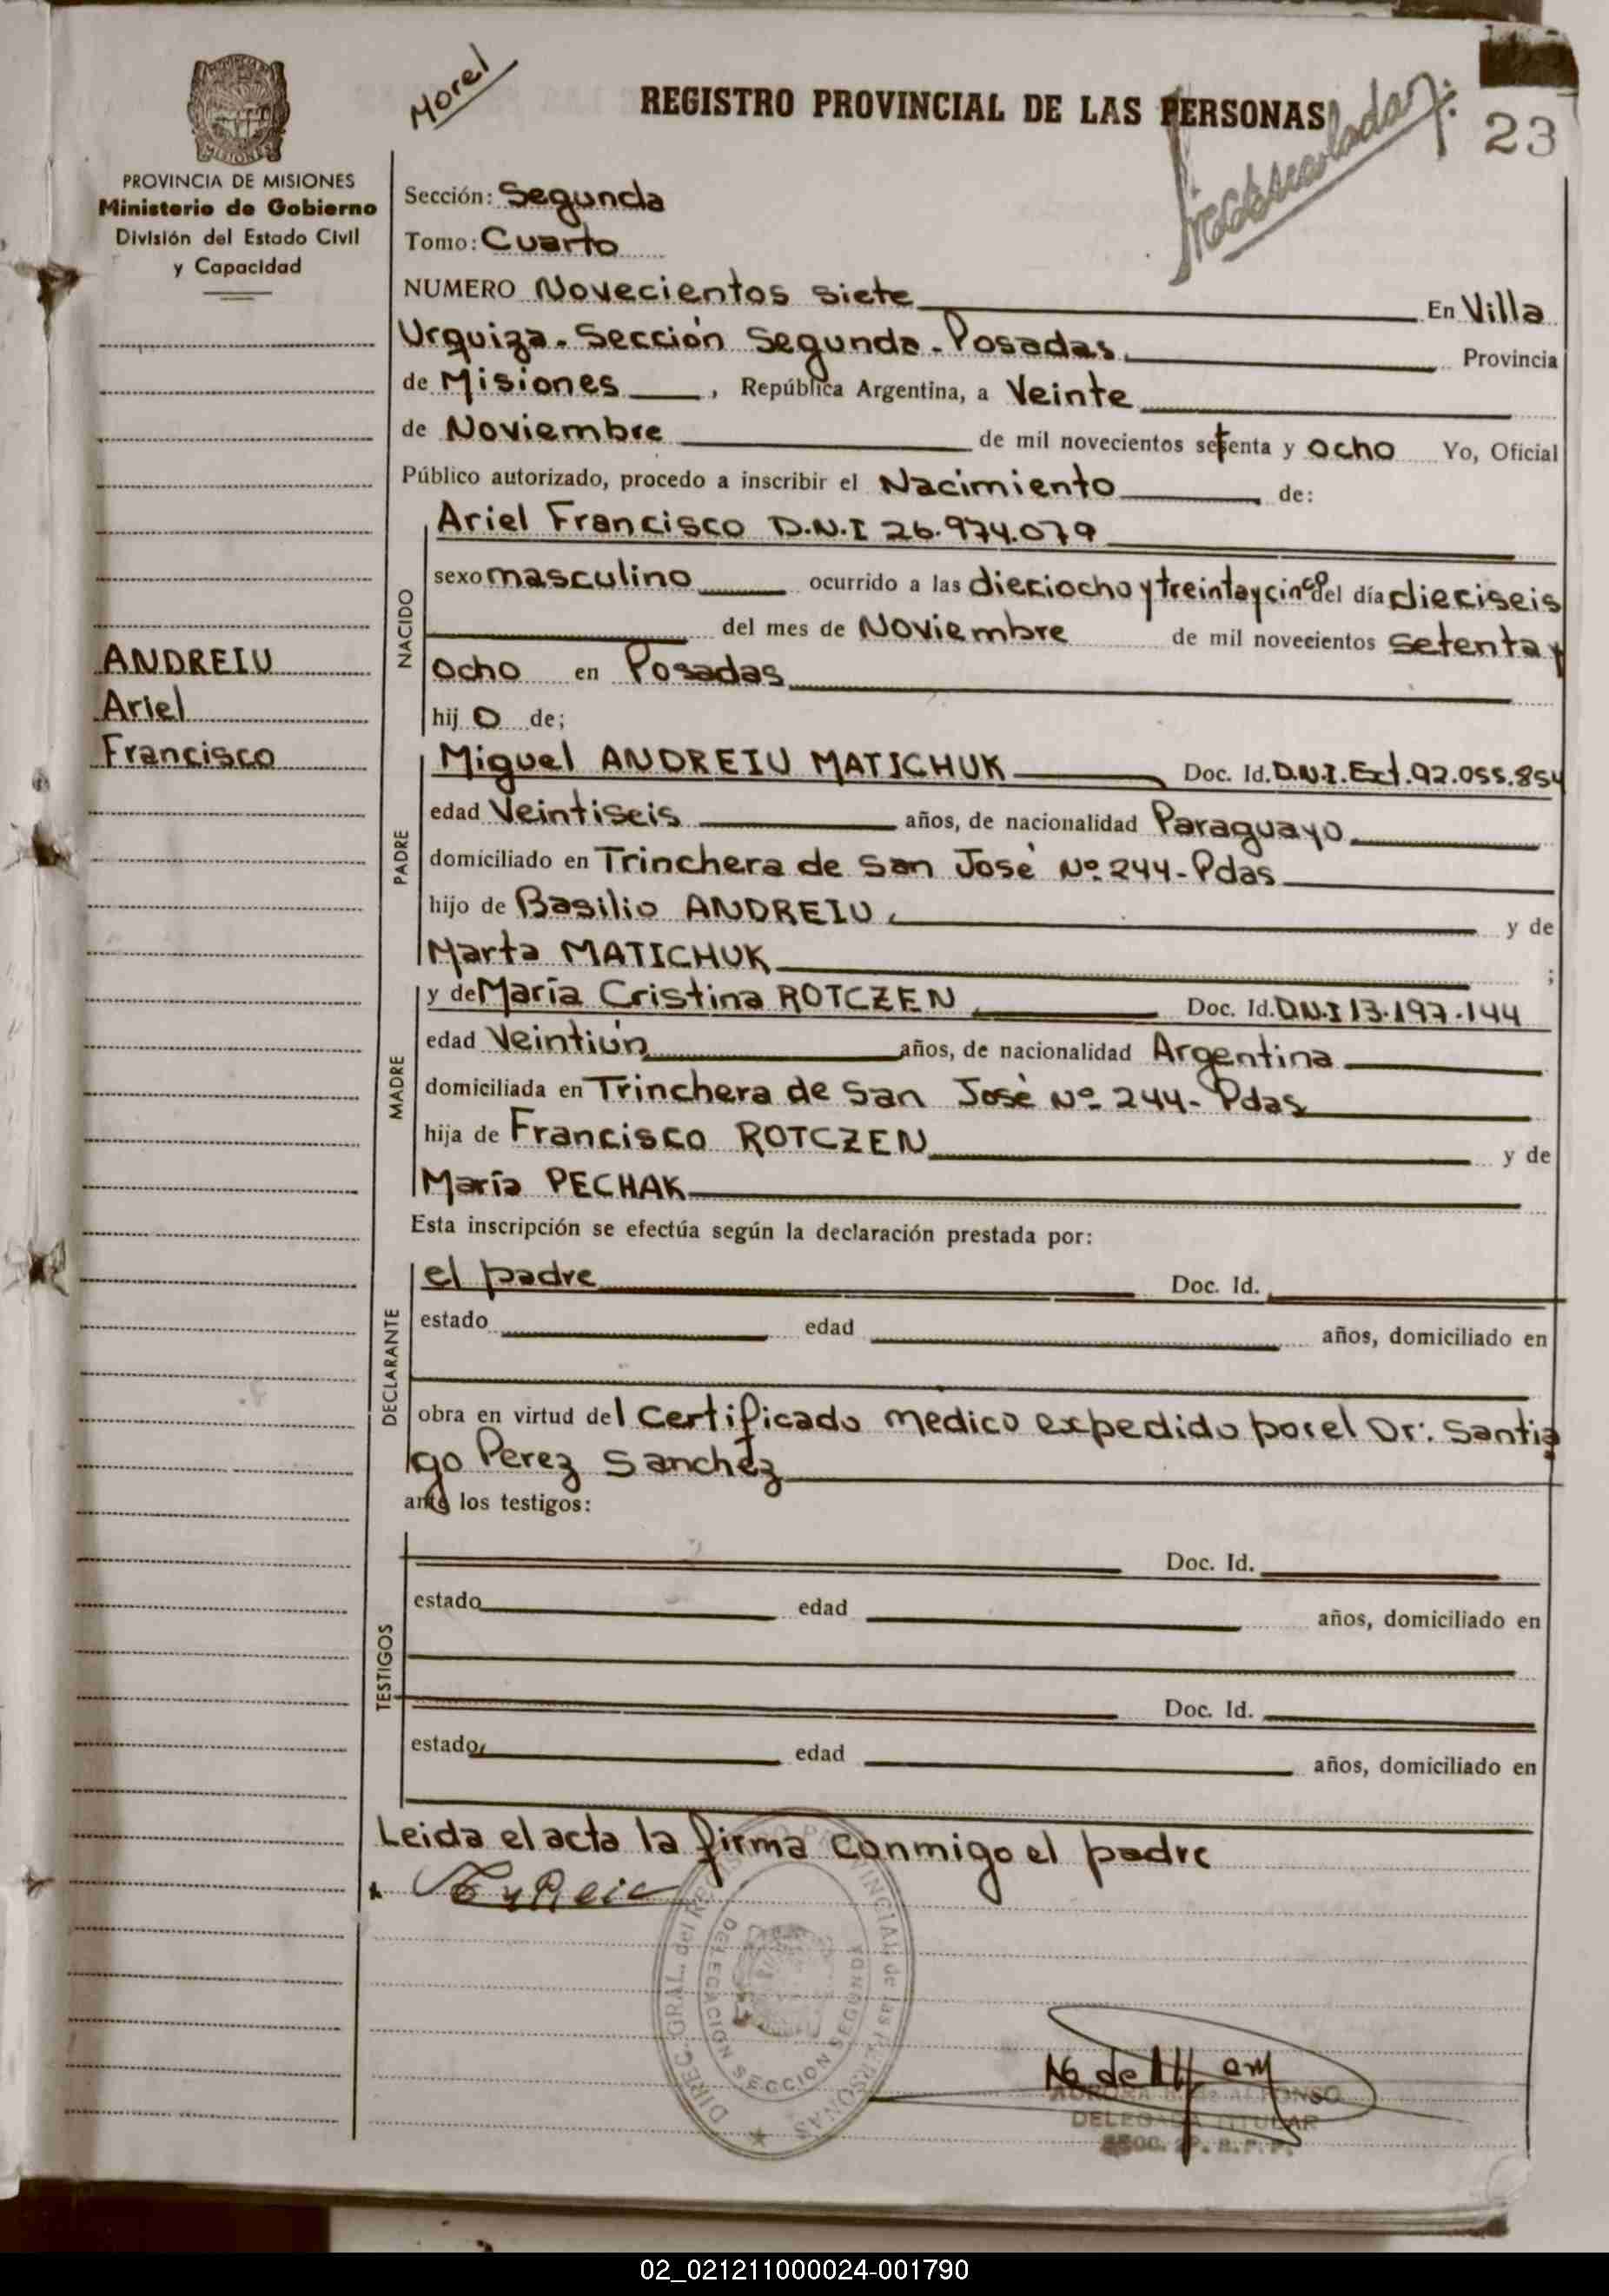 Morel
REGISTRO PROVINCIAL DE LAS PERSONAS
23
PROVINCIA DE MISIONES
Ministerio de Gobierno
División del Estado Civil
y Capacidad
Sección: Segunda
Tomo: Cuarto
NUMERO Novecientos siete En Villa
Urquiza. Sección Segunda. Posadas. Provincia
de Misiones, República Argentina, a Veinte
de Noviembre de mil novecientos setenta y ocho Yo, Oficial
Público autorizado, procedo a inscribir el Nacimiento de:
Ariel Francisco D.N.I 26.974.079
NACIDO
sexo masculino ocurrido a las dieciocho y treinta y cinco del día dieciseis
del mes de Noviembre de mil novecientos setenta y
ocho en Posadas
hijo de;
ANDREIU
Ariel
Francisco
PADRE
Miguel ANDREIU MATICHUK Doc. Id. D.N.I. Ext. 92.055.854
edad Veintiseis años, de nacionalidad Paraguayo
domiciliado en Trinchera de San José Nº 244-Pdas
hijo de Basilio ANDREIU y de
Marta MATICHUK ;
MADRE
y de María Cristina ROTCZEN Doc. Id. D.N.I 13.197.144
edad Veintiún años, de nacionalidad Argentina
domiciliada en Trinchera de San José Nº 244- Pdas
hija de Francisco ROTCZEN y de
María PECHAK
Esta inscripción se efectúa según la declaración prestada por:
DECLARANTE
el padre Doc. Id.
estado edad años, domiciliado en
obra en virtud del Certificado medico expedido por el Dr: Santia
go Perez Sanchez
ante los testigos:
TESTIGOS
Doc. Id.
estado edad años, domiciliado en
Doc. Id.
estado edad años, domiciliado en
Leida el acta la firma conmigo el padre
DIREC. GRAL. del REGISTRO PROVINCIAL de las PERSONAS
DELEGACION SECCION SEGUNDA
ALFONSO
DELEGADA TITULAR
02_021211000024-001790